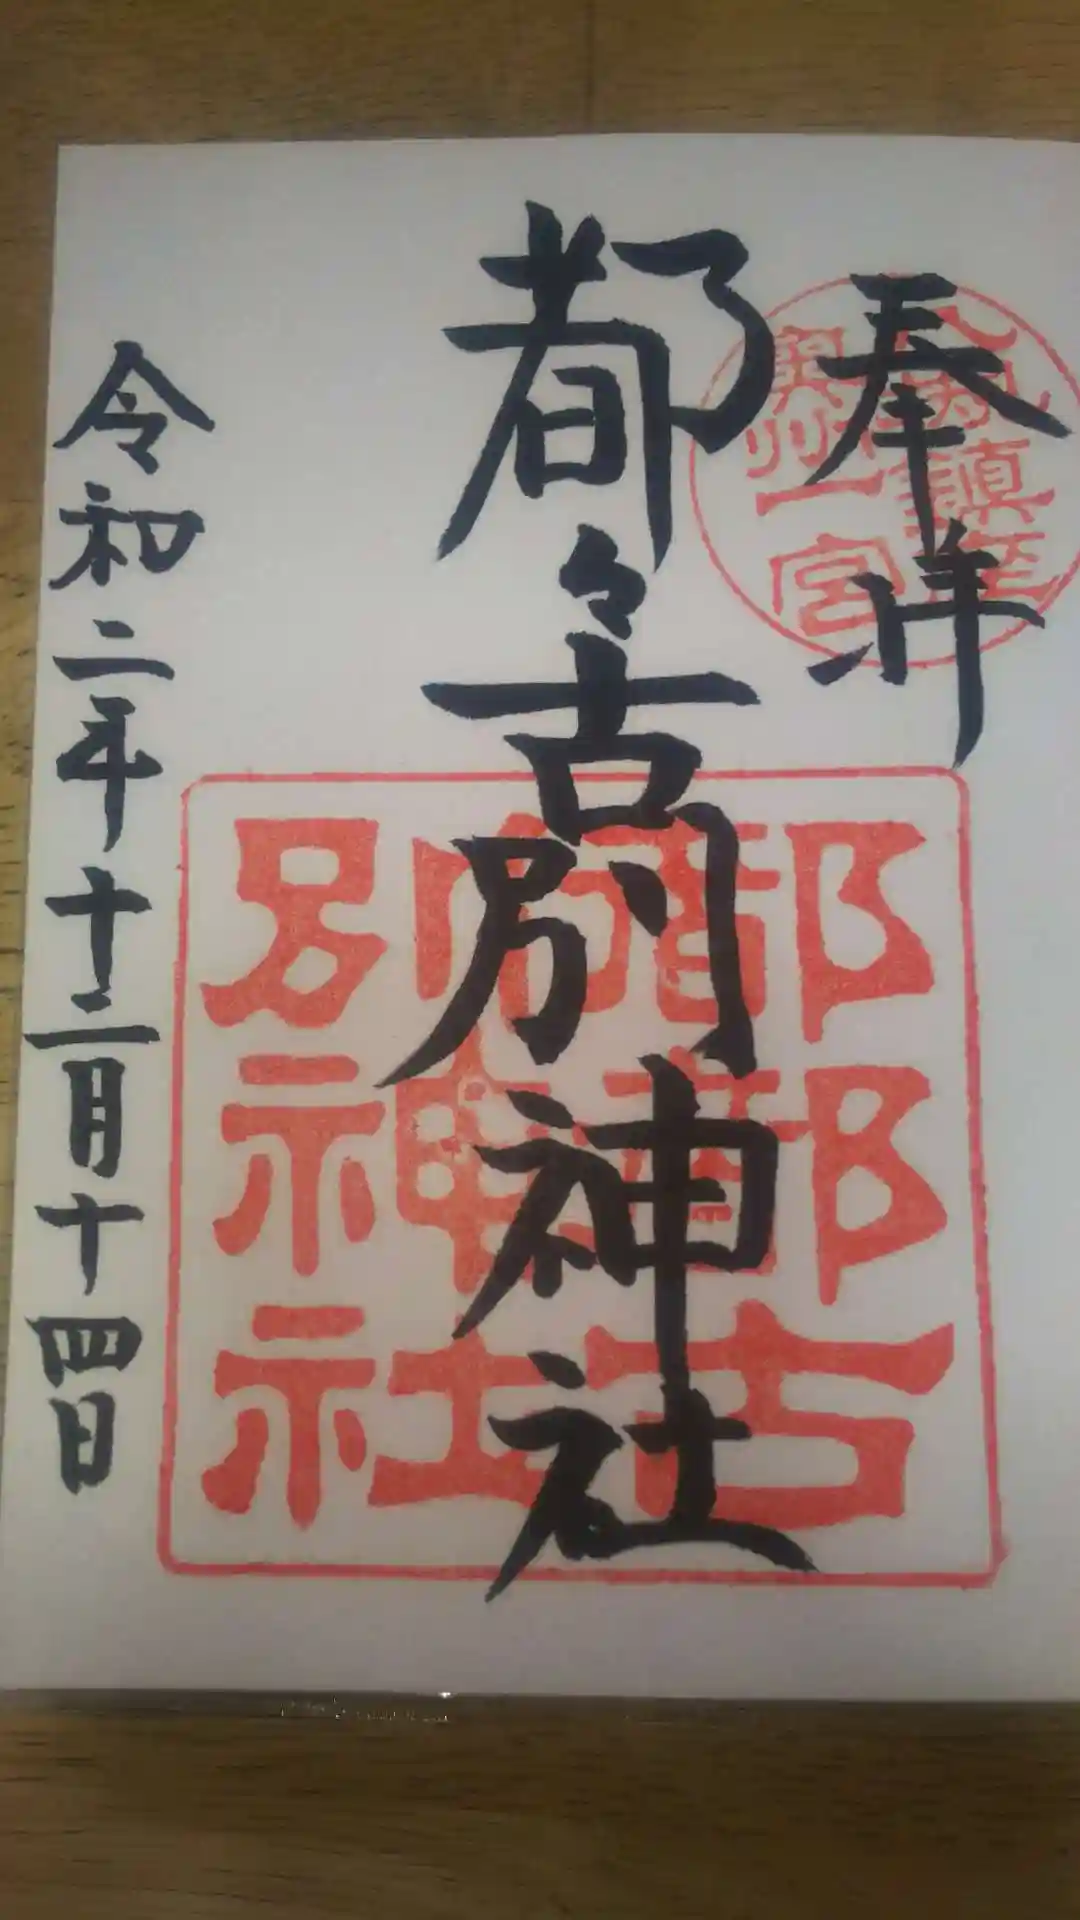 奉拝
奥州一宮
都々古別神社
都都古別神社
令和二年十二月十四日